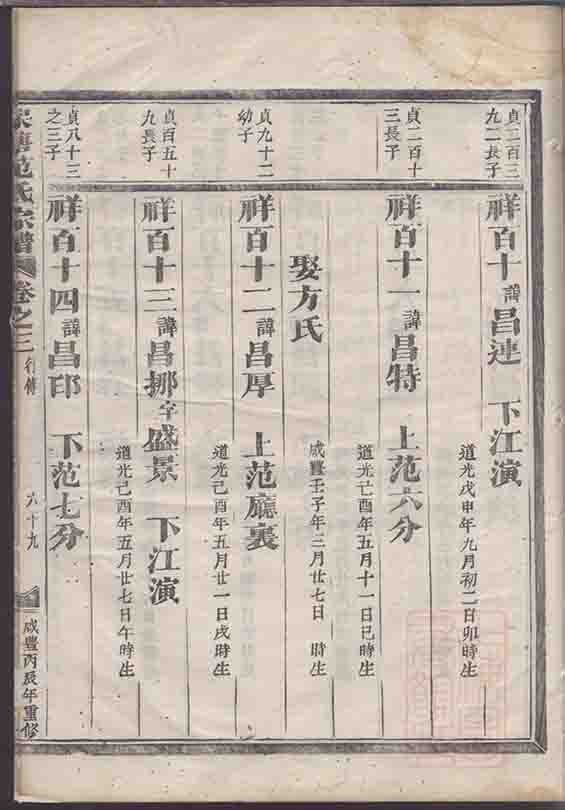 貞二百三
九二長子
祥百十 諱昌連 下江演
道光戊申年九月初二日卯時生
貞二百十
三長子
祥百十一 諱昌特 上范六分
道光己酉年五月十一日巳時生
娶方氏
咸豐壬子年三月廿七日 時生
貞九十二
幼子
祥百十二 諱昌厚 上范廳裏
道光己酉年五月廿一日戌時生
貞百五十
九長子
祥百十三 諱昌挪 字盛景 下江演
道光己酉年五月廿七日午時生
貞八十三
之三子
祥百十四 諱昌印 下范七分
范氏宗譜 卷之三 行傳 六十九 咸豐丙辰年重修